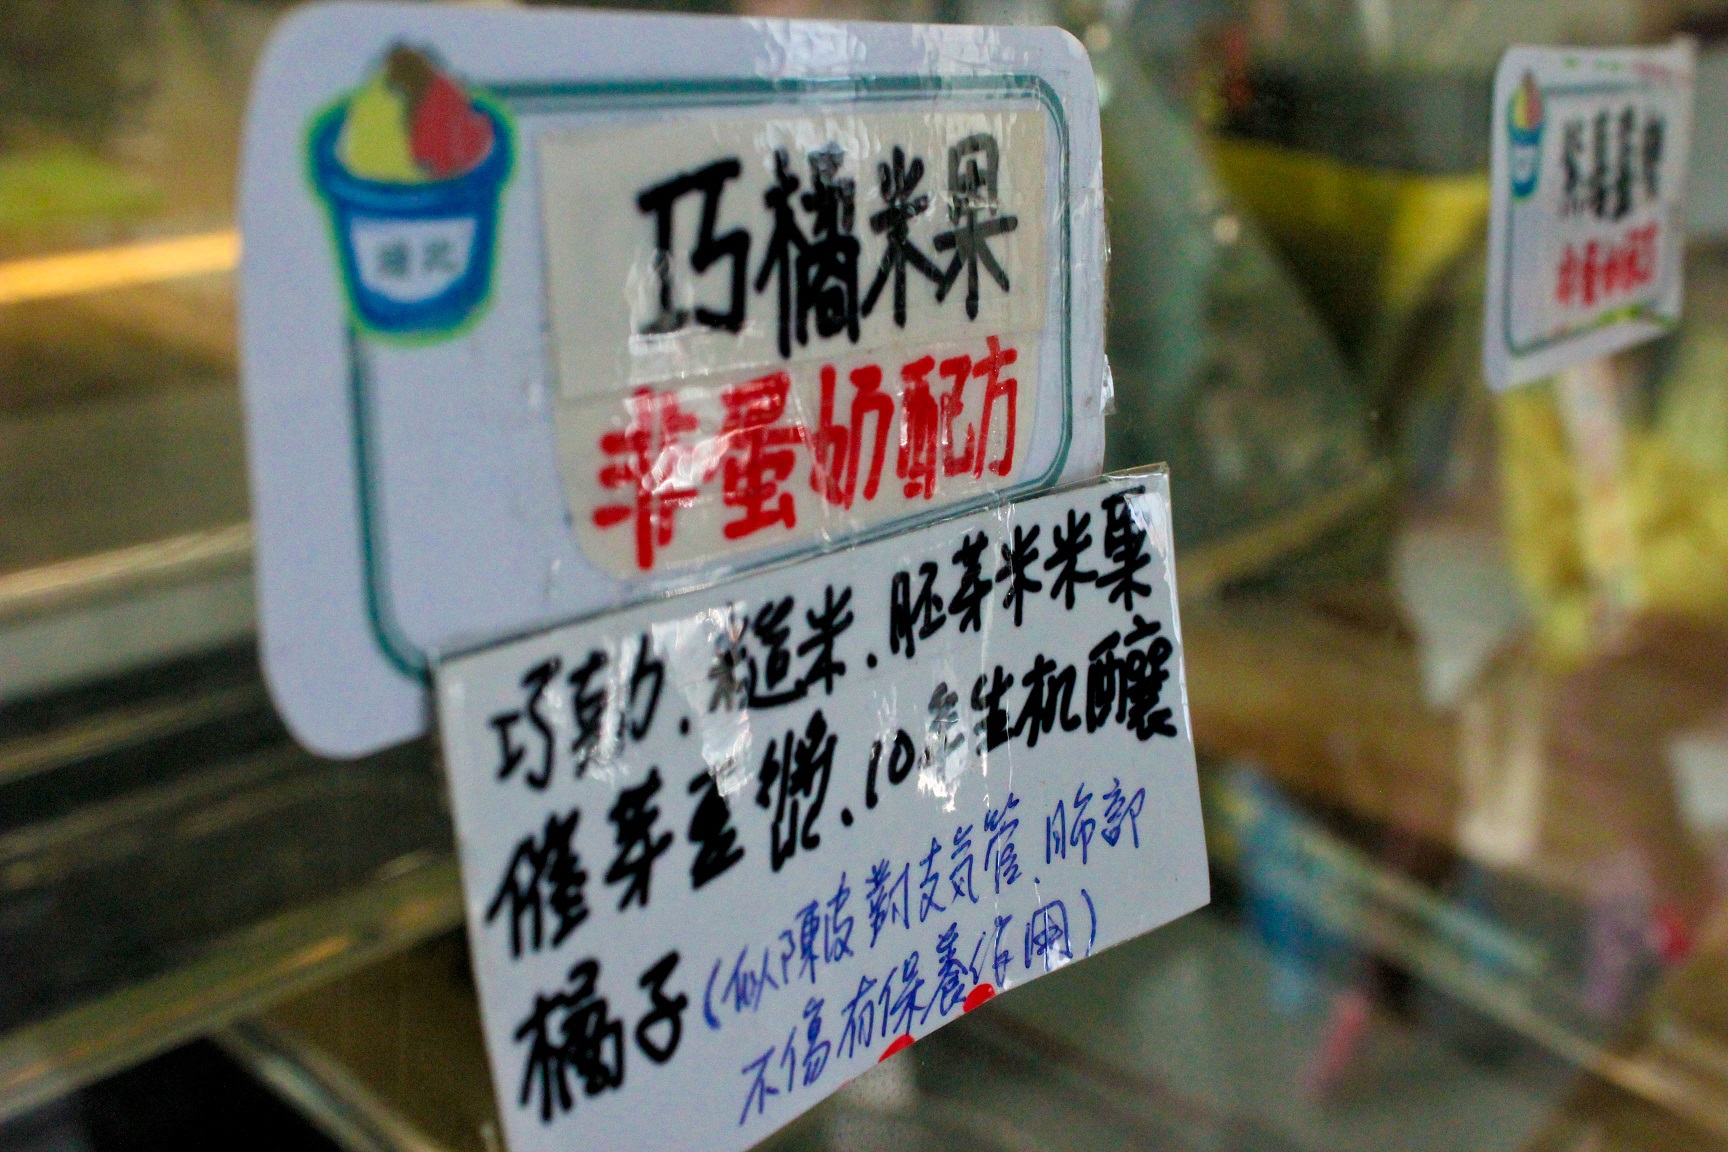 巧橘米果
非蛋奶配方
巧克力.糙米.胚芽米米果
催芽豆漿.10年生机釀
橘子(似陳皮對支氣管.肺部
不傷有保養作用)